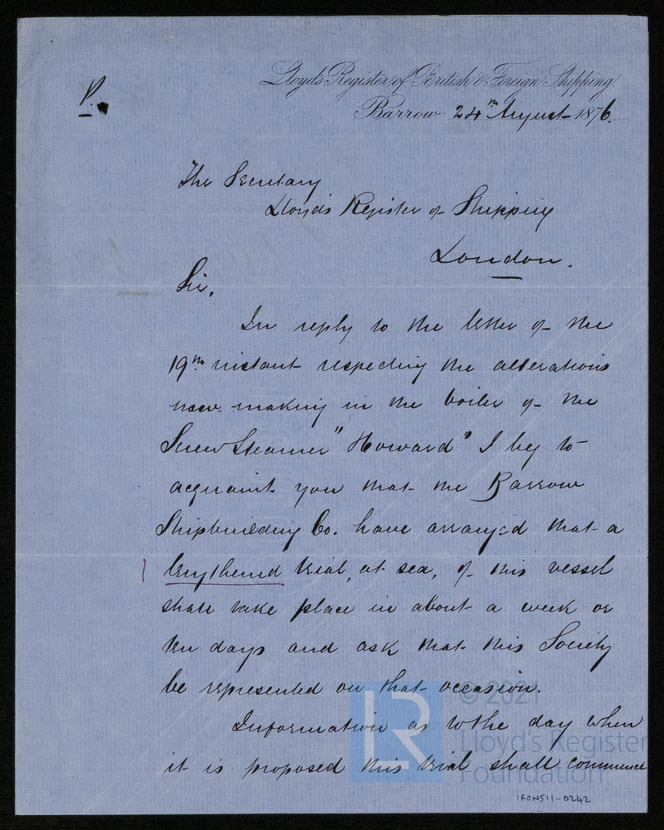 P.
Lloyd's Register of British & Foreign Shipping.
Barrow 24th August 1876.
The Secretary
Lloyd's Register of Shipping
London.
Sir,
In reply to the letter of the
19th instant respecting the alterations
now making in the boiler of the
Screw Steamer "Howard" I beg to
acquaint you that the Barrow
Shipbuilding Co. have arranged that a
lengthened trial, at sea, of this vessel
shall take place in about a week or
ten days and ask that this Society
be represented on that occasion.
Information as to the day when
it is proposed this trial shall commence
© 2021
LR
Lloyd's Register
Foundation
IRON511-0242